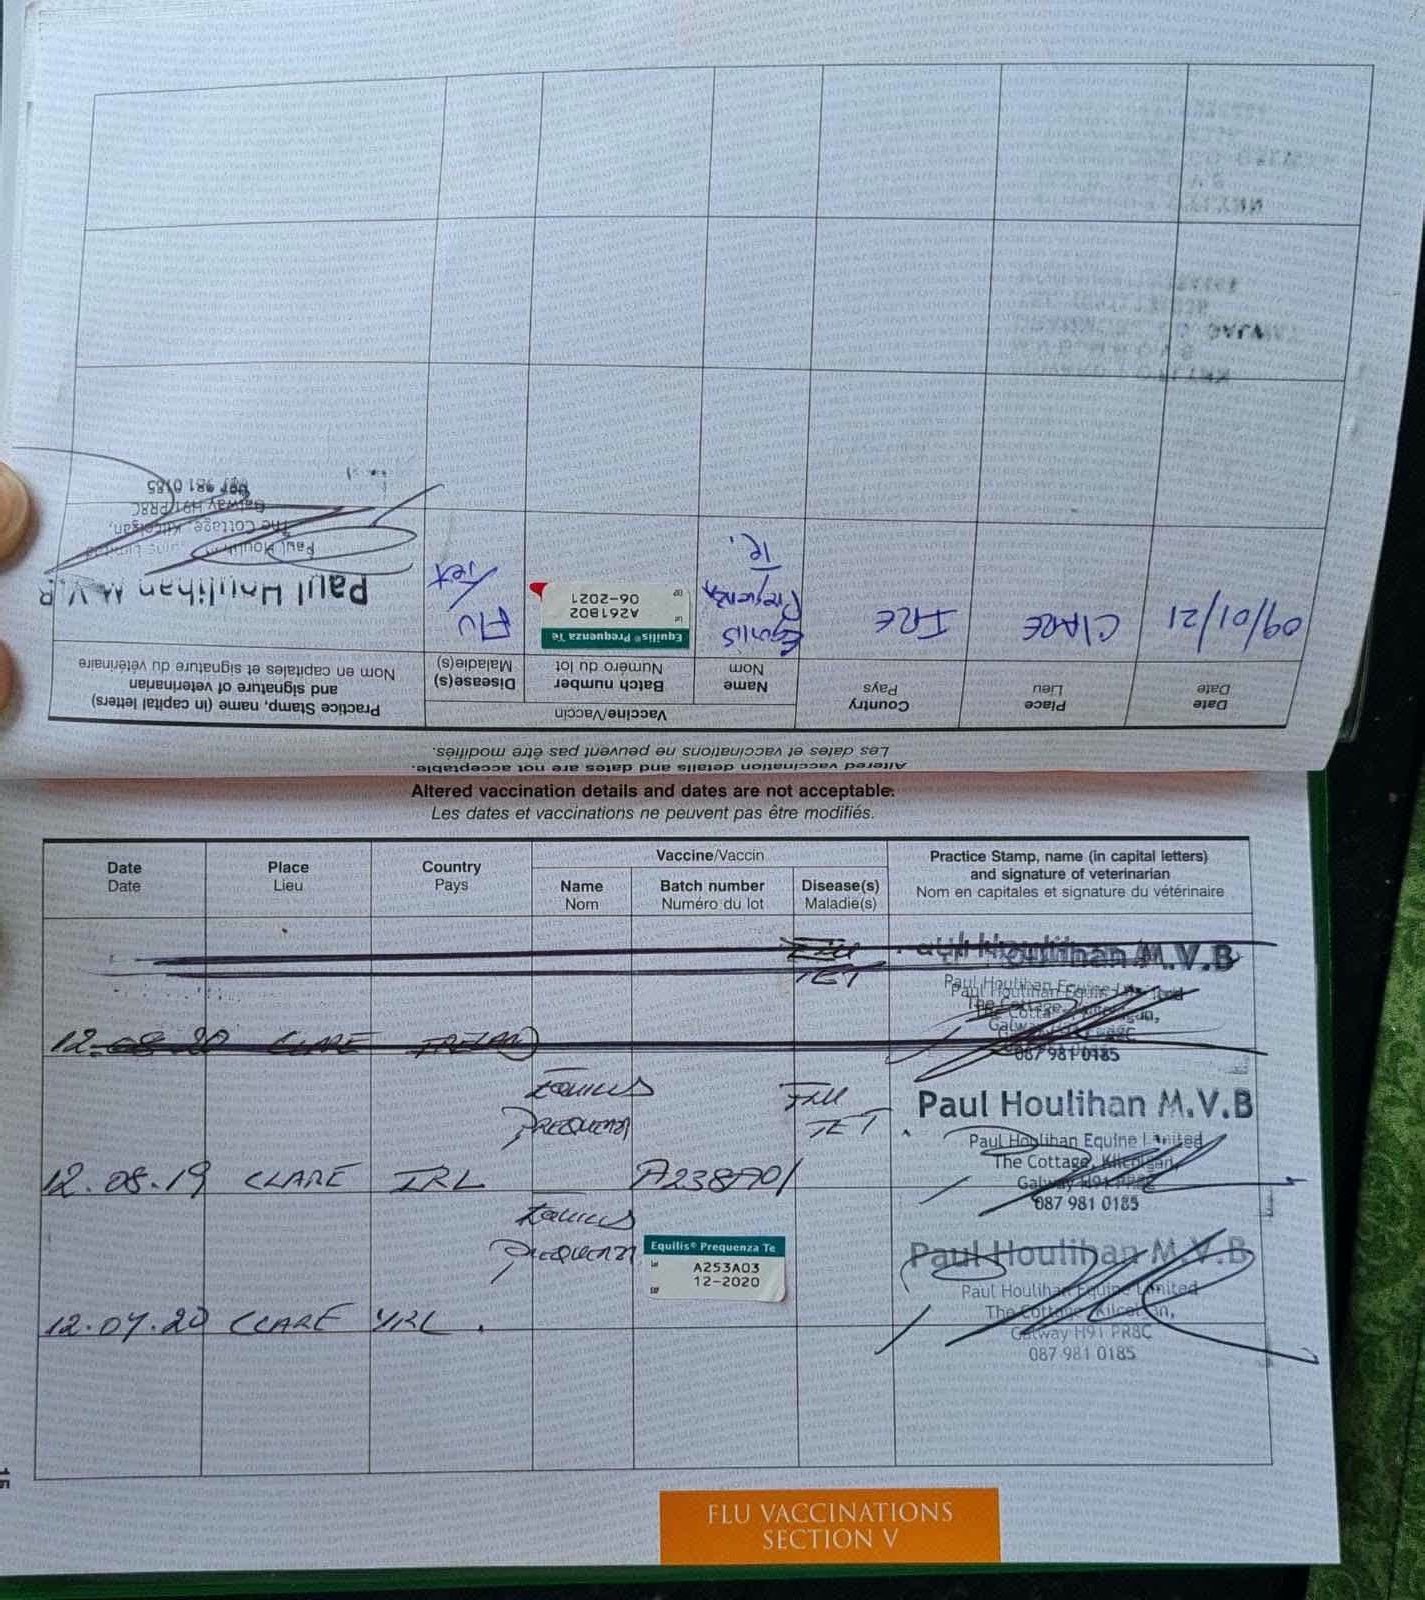 Altered vaccination details and dates are not acceptable.
Les dates et vaccinations ne peuvent pas être modifiés.
Date
Date
Place
Lieu
Country
Pays
Vaccine/Vaccin
Name
Nom
Batch number
Numéro du lot
Disease(s)
Maladie(s)
Practice Stamp, name (in capital letters)
and signature of veterinarian
Nom en capitales et signature du vétérinaire
09/01/21
CLARE
IRE
EQUILIS
PREQUENZA
TE.
Equilis® Prequenza Te
A261B02
06-2021
FLU
TET
Paul Houlihan M.V.B
Paul Houlihan
The Cottage, Kilcolgan,
Galway H91 PR8C
087 981 0185
Altered vaccination details and dates are not acceptable.
Les dates et vaccinations ne peuvent pas être modifiés.
Date
Date
Place
Lieu
Country
Pays
Vaccine/Vaccin
Name
Nom
Batch number
Numéro du lot
Disease(s)
Maladie(s)
Practice Stamp, name (in capital letters)
and signature of veterinarian
Nom en capitales et signature du vétérinaire
12.08.20 CLARE IRELAND
FLU
TET
Houlihan M.V.B
Paul Houlihan Equine Limited
The Cottage
Galway
087 981 0185
12.08.19 CLARE IRL
EQUILIS
PREQUENZA
A238A01
FLU
TET.
Paul Houlihan M.V.B
Paul Houlihan Equine Limited
The Cottage, Kilcolgan,
Galway H91 PR8C
087 981 0185
12.07.20 CLARE IRL.
EQUILIS
PREQUENZA
Equilis® Prequenza Te
A253A03
12-2020
Paul Houlihan M.V.B
Paul Houlihan Equine Limited
The Cottage, Kilcolgan,
Galway H91 PR8C
087 981 0185
15
FLU VACCINATIONS
SECTION V